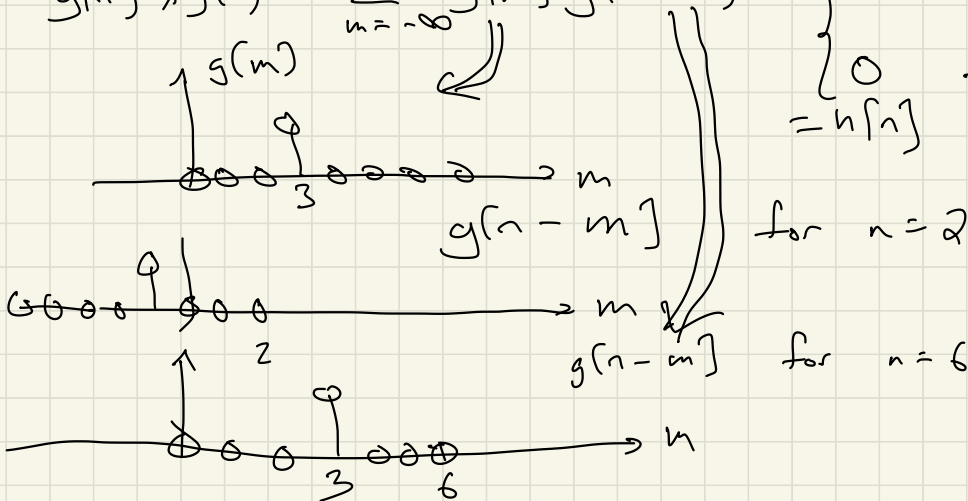 m = -∞
g(m)
0
= h[n]
3
m
g[n - m] for n = 2
m
2
g[n - m] for n = 6
m
3
6